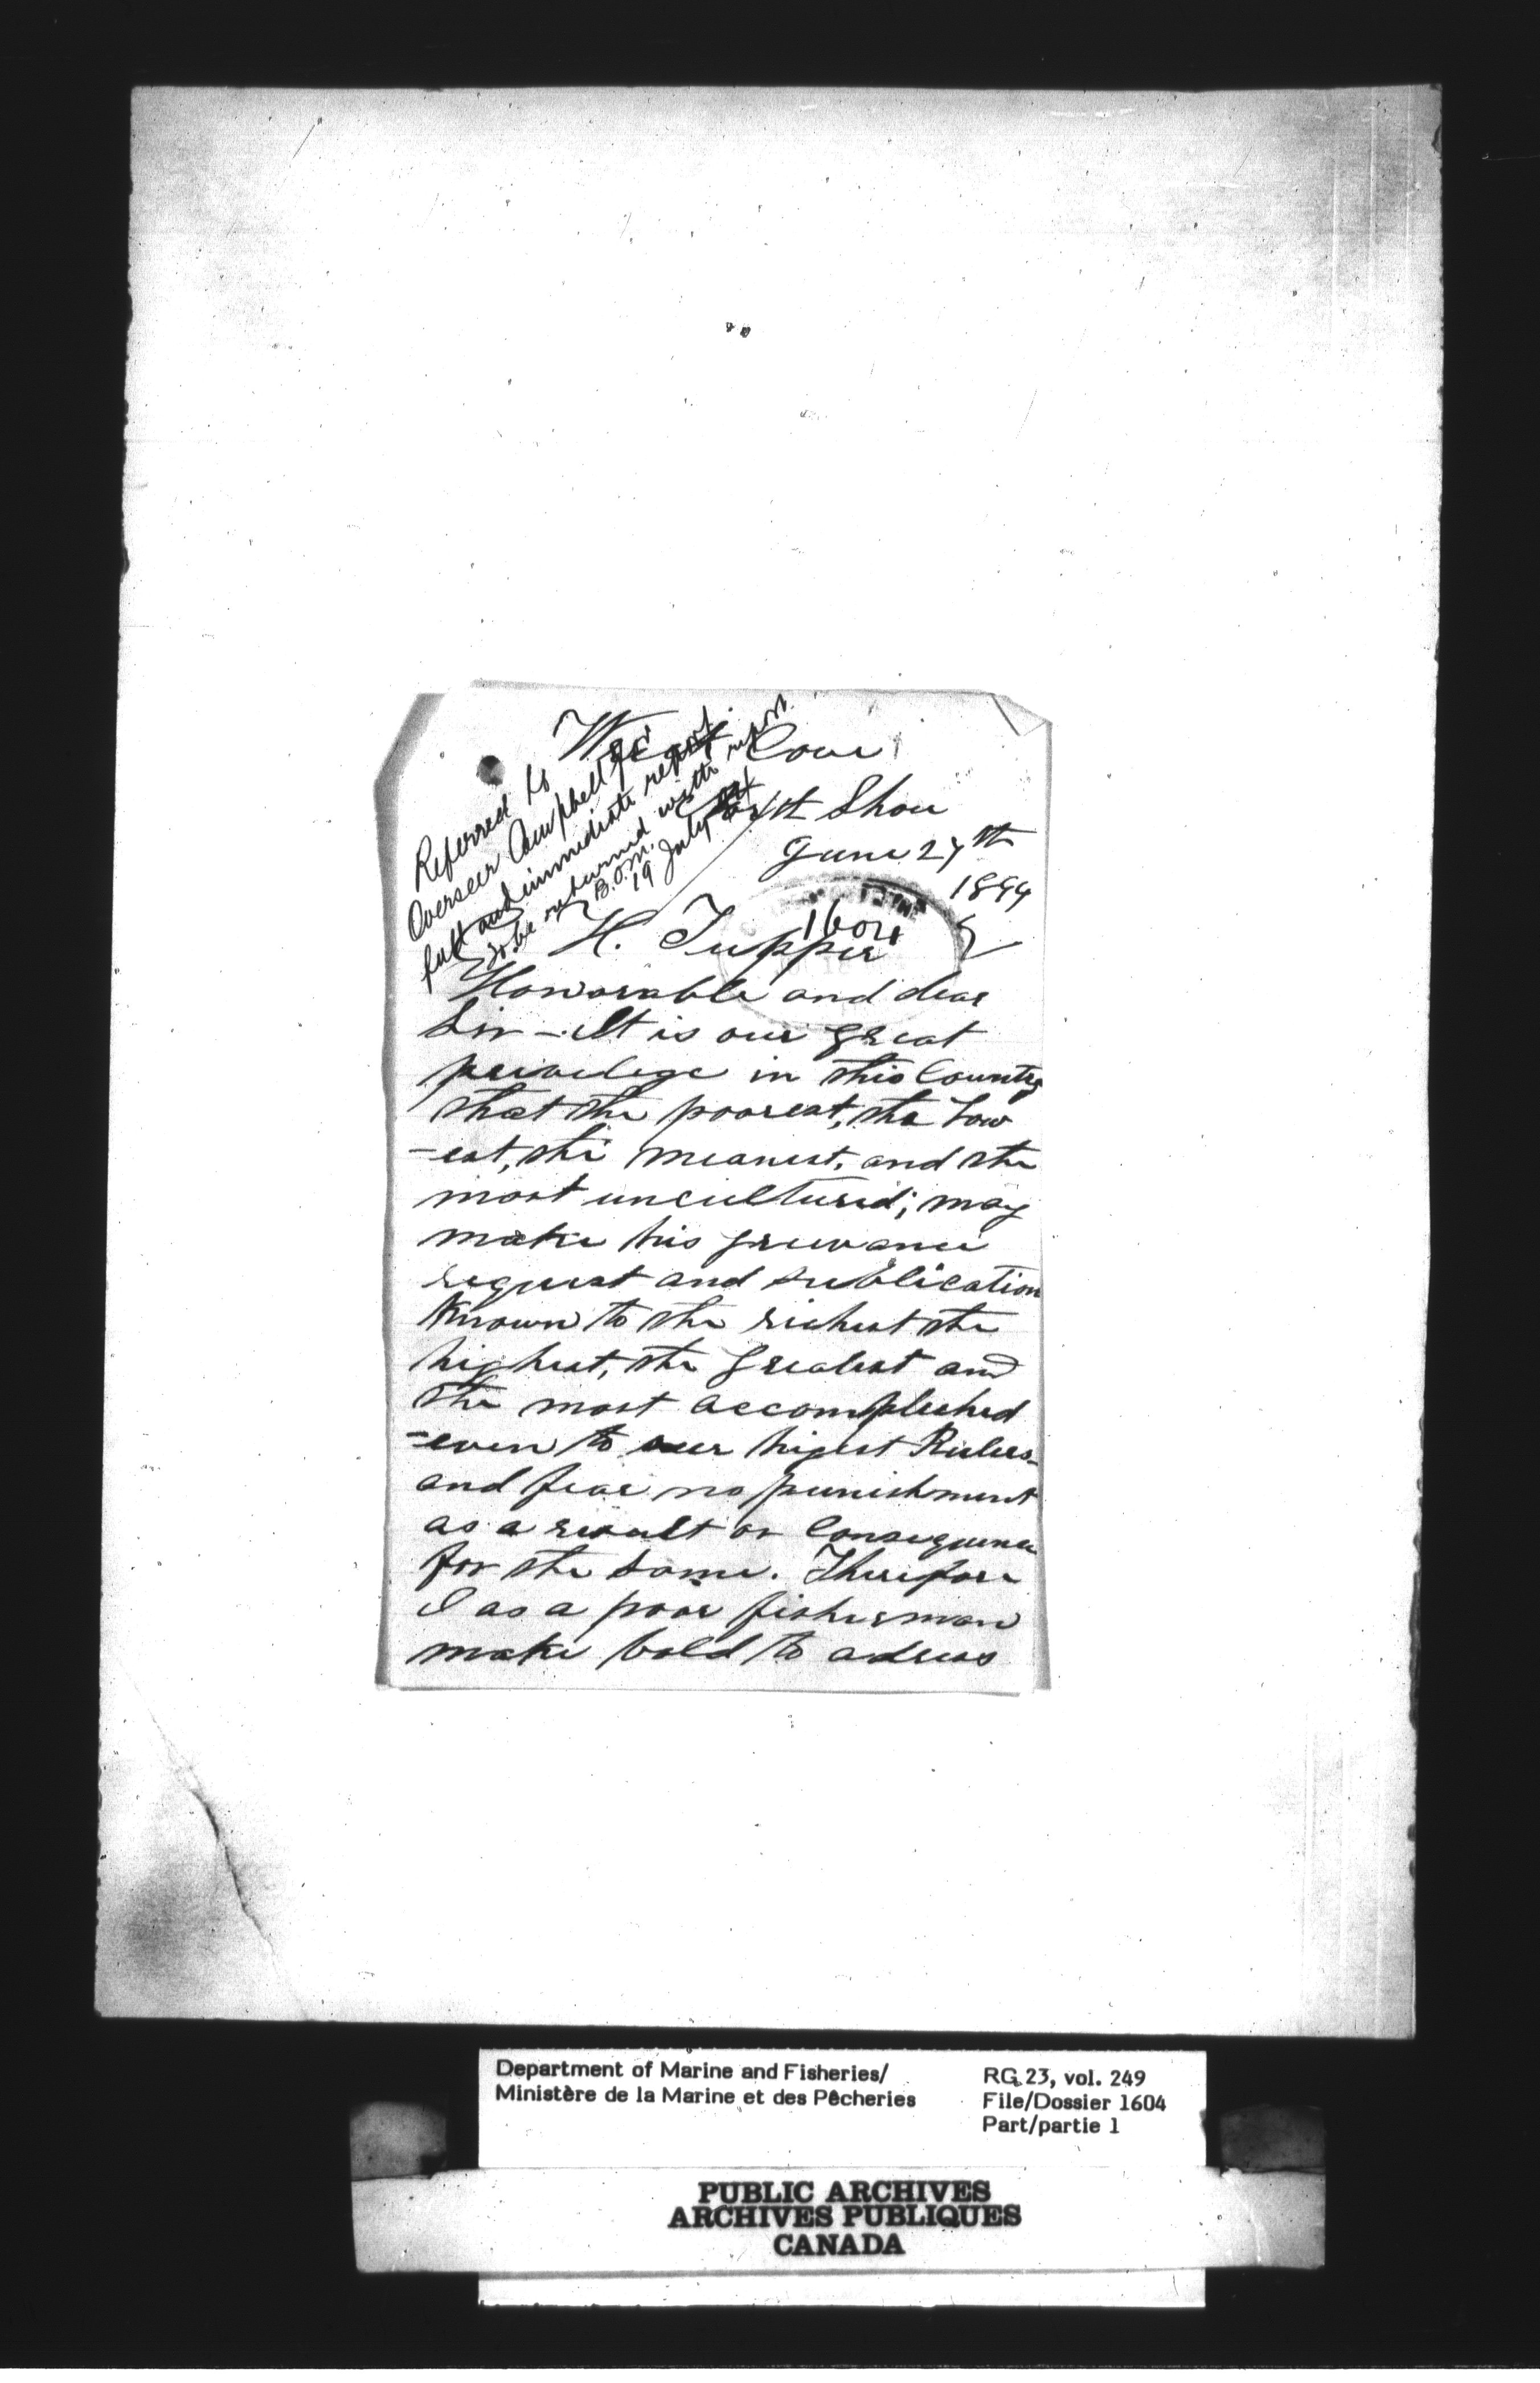 Referred to
Overseer Campbell for
full and immediate report.
To be returned with report.
B.O.M.
19 July 94
West Cove
East Shore
June 27th
1894
1604
H. Tupper
Honorable and dear
Sir - It is our great
privelege in this Country
that the poorest, the Low
-est, the meanest, and the
most uncultured; may
make his grievance
request and sublication
Known to the richest the
highest, the greatest and
the most accomplished
-even to our higest Rulers-
and fear no punishment
as a result or Consequence
for the same. Therefore
I as a poor fisherman
make bold to adress
Department of Marine and Fisheries/
Ministère de la Marine et des Pêcheries
RG 23, vol. 249
File/Dossier 1604
Part/partie 1
PUBLIC ARCHIVES
ARCHIVES PUBLIQUES
CANADA